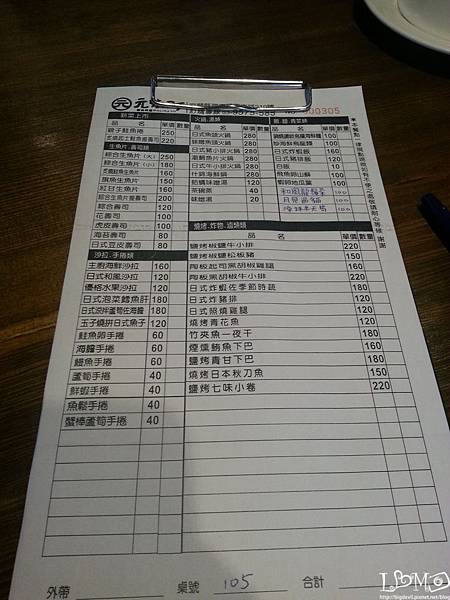 元
00305
新菜上市
品 名 單價 數量
親子鮭魚捲 250
炙燒起士鮭魚壽司 220
生魚片.壽司類
綜合生魚片(大) 250
綜合生魚片(小) 180
炙燒鮭魚生魚片 160
旗魚生魚片 150
紅甘生魚片 160
綜合生魚片握壽司 200
綜合壽司 120
花壽司 100
虎皮壽司 100
海苔壽司 80
日式豆皮壽司 80
沙拉.手捲類
主廚海鮮沙拉 160
日式和風沙拉 120
優格水果沙拉 120
日式泡菜鱈魚肝 180
日式涼拌蘆筍佐海膽 180
玉子燒拼日式魚子 120
鮭魚卵手捲 60
海膽手捲 60
鰻魚手捲 60
蘆筍手捲 40
鮮蝦手捲 40
魚鬆手捲 40
蟹棒蘆筍手捲 40
火鍋.湯類
品 名 單價 數量
日式魚頭火鍋 280
味噌魚頭火鍋 280
日式豬小排火鍋 280
潮鯛魚片火鍋 280
日式牛小排火鍋 280
什錦海鮮鍋 280
蛤蠣味噌湯 120
茶碗蒸 40
味噌湯 20
飯.麵.青菜類
品 名 單價 數量
炒海鮮烏龍麵 100
日式炸蝦飯 110
日式豬排飯 110
白飯 10
飛魚卵山蘇 100
蝦卵地瓜葉 100
和風龍鬚菜 100
100
100
燒烤.炸物.滷類類
品 名 單價 數量
鹽烤椒鹽牛小排 220
鹽烤椒鹽松板豬 150
陶板起司黑胡椒雞腿 160
陶板黑胡椒牛小排 220
日式炸蝦佐季節時蔬 180
日式炸豬排 120
日式照燒雞腿 120
燒烤青花魚 120
竹夾魚一夜干 180
煙燻鮪魚下巴 160
鹽烤青甘下巴 180
燒烤日本秋刀魚 150
鹽烤七味小卷 220
外帶 桌號 105 合計
LBMO
http://bigdevil.pixnet.net/blog